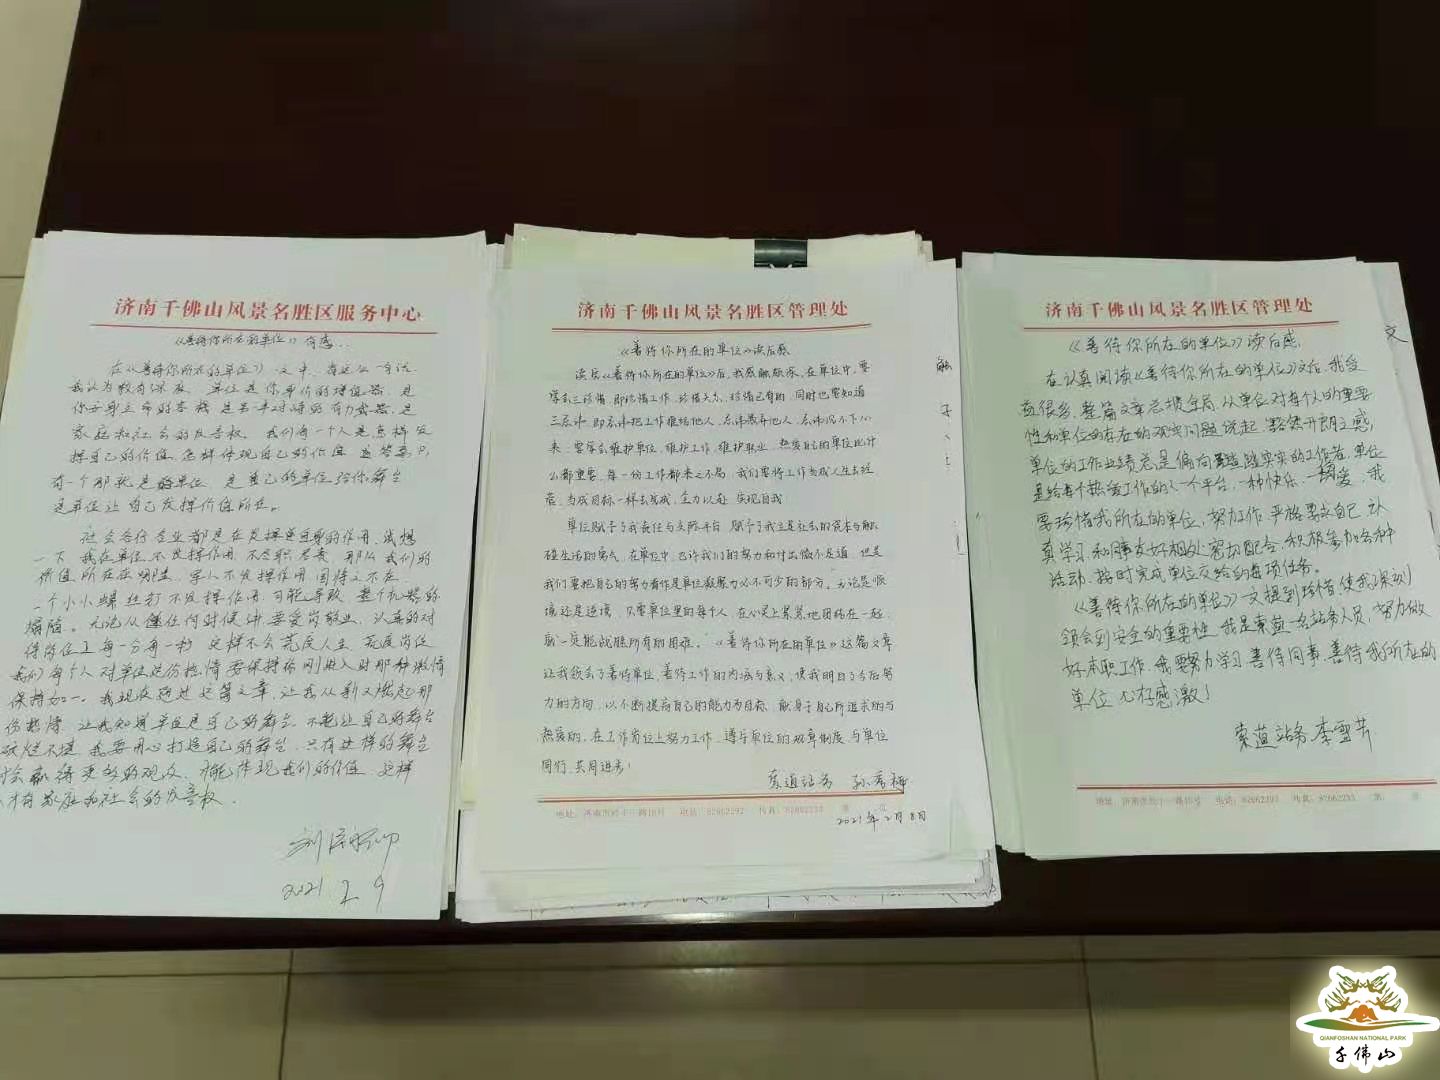 济南千佛山风景名胜区服务中心
《善待你所在的单位》有感
在《善待你所在的单位》一文中，有这么一句话
我认为教育深刻，单位是你身价的增值器，是
你安身立命的客栈，是
家庭和社会的发言权，我们每一个人是怎样发
挥自己的价值，怎样体现自己的价值
是单位让自己发挥价值所在。
社会各行各业都是在发挥着自身的作用，试想
一下，我在单位不发挥作用，不尽职尽责，那么我们的
价值所在在哪里，军人不发挥作用国将之不在，
一个小小螺丝钉不发挥作用，可能导致整个机器的
塌陷。无论从
待岗位上每一分每一秒，这样不会荒度人生，荒度岗位
我们每个人对单位这份热情要保持你刚进入时那种激情
保持如一。我现在
份热情，让我知道单位是自己的舞台，不能让自己的舞台
破烂不堪，我要用心打造自己的舞台，只有这样的舞台
才会赢得更多的观众，才能体现我们的价值，这样
才有家庭和社会的发言权。
2021.2.9
济南千佛山风景名胜区管理处
《善待你所在的单位》读后感
读后《善待你所在的单位》后，我感触颇深，在单位中，要
学会三珍惜，即珍惜工作、珍惜关系、珍惜已有的，同时也要知道
三忌讳，即忌讳把工作推给他人，忌讳愚弄他人，忌讳沉不下心
来，要学会维护单位，维护工作，维护职业，热爱自己的单位比什
么都重要，每一份工作都来之不易，我们要将工作当成人生去经
营，当成目标一样去完成，全力以赴，实现自我
单位赋予了我责任与实际平台，赋予了我立足社会的资本与触
碰生活的勇气，在单位中，也许我们的努力和付出微不足道，但是
我们要把自己的努力看作是单位凝聚力必不可少的部分，无论是顺
境还是逆境，只要单位里的每个人，在心灵上紧紧地团结在一起，
就一定能战胜所有的困难。《善待你所在的单位》这篇文章
让我领会了善待单位，善待工作的内涵与意义，使我明白了今后努
力的方向，以不断提高自己的能力为目标，献身于自己所追求的与
热爱的，在工作岗位上努力工作，遵守单位的规章制度，与单位
同行，共同进步！
索道站务 孙秀梅
地址：济南市经十一路18号 电话：82662292 传真：82662293 第 页
2021年2月8日
济南千佛山风景名胜区管理处
《善待你所在的单位》读后感
在认真阅读《善待你所在的单位》文后，我受
益很多，整篇文章总揽全局，从单位对每个人的重要
性和单位的存在的现实问题说起，豁然开朗之感，
单位的工作业绩总是偏向踏踏实实的工作者，单位
是给每个热爱工作的人一个平台，一种快乐，一份爱，我
要珍惜我所在的单位，努力工作，严格要求自己，认
真学习，和同事友好相处密切配合，积极参加各种
活动，按时完成单位交给的每项任务。
《善待你所在的单位》一文提到珍惜，使我深刻
领会到安全的重要性，我是索道一名站务人员，努力做
好本职工作，我要努力学习善待同事，善待我所在的
单位，心存感激！
索道站务 李雪芹
地址：济南市经十一路18号 电话：82662292 传真：82662293 第 页
文
触
QIANFOSHAN NATIONAL PARK
千佛山